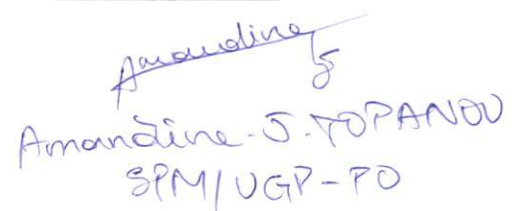 Amandine
Amandine. J. TOPANOU
SPM/UGP-PO